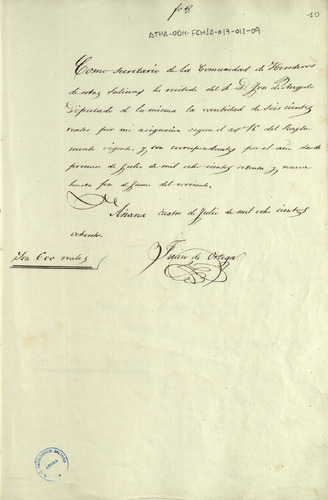 fo 8
10
ATHA-DDH-FCHSA-017-012-09
Como secretario de la Comunidad de Herederos
de estas Salinas he recibido del Sr. D. José de Angulo
Diputado de la misma la cantidad de seis cientos
reales por mi asignacion segun el art.º 16 del Regla-
mento vigente, y son correspondientes por el año desde
primero de Julio de mil ocho cientos setenta y nueve
hasta fin de Junio del corriente.
Añana cuatro de Julio de mil ocho cientos
ochenta.
Son 600 reales
Julian de Ortega